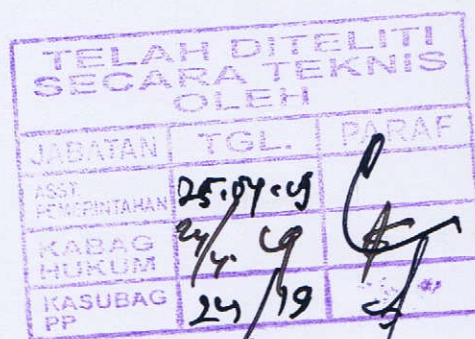 TELAH DITELITI
SECARA TEKNIS
OLEH
JABATAN TGL. PARAF
ASST.
PEMERINTAHAN 25.04.19
KABAG
HUKUM 24/4. 19
KASUBAG
PP 24/19